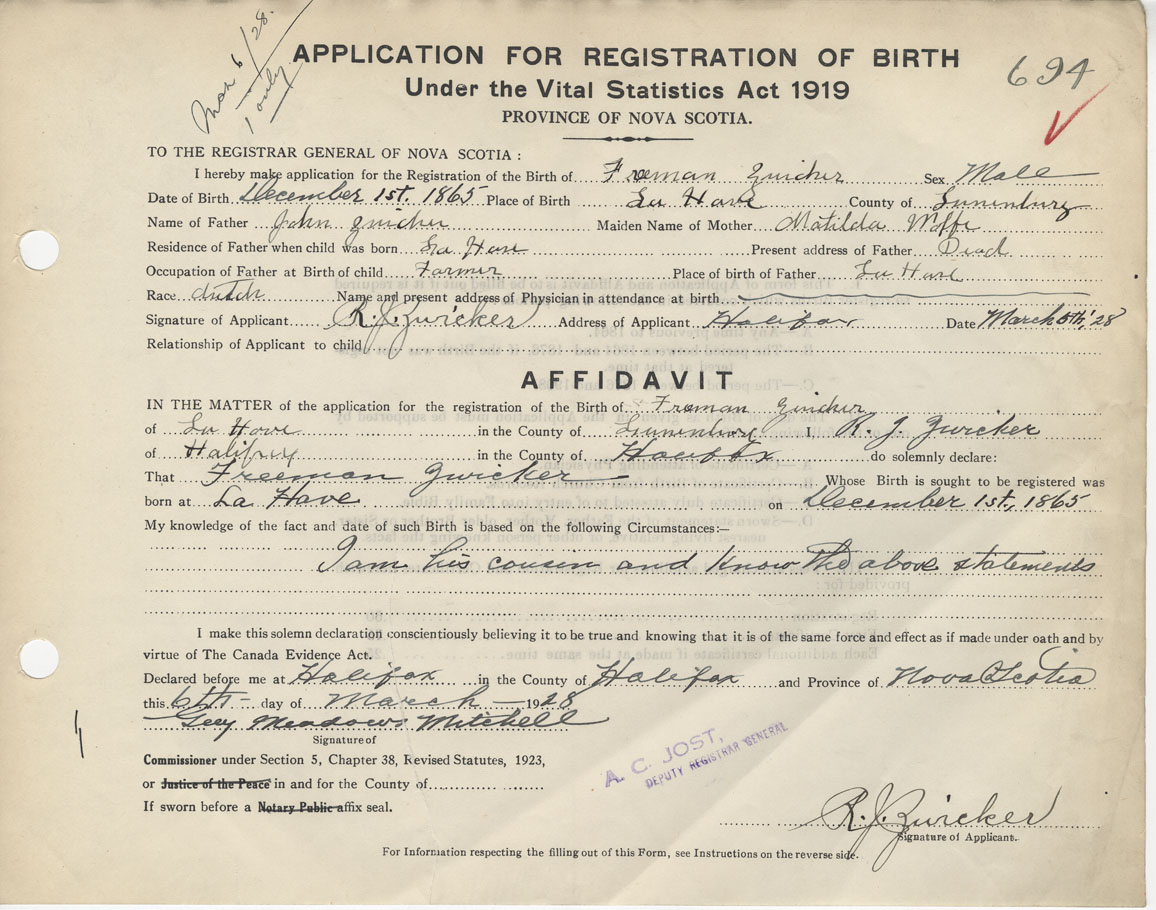 Mar 6/28.
1 only.
694
APPLICATION FOR REGISTRATION OF BIRTH
Under the Vital Statistics Act 1919
PROVINCE OF NOVA SCOTIA.
TO THE REGISTRAR GENERAL OF NOVA SCOTIA :
I hereby make application for the Registration of the Birth of Freeman Zwicker Sex Male
Date of Birth December 1st. 1865 Place of Birth La Have County of Lunenburg
Name of Father John Zwicker Maiden Name of Mother Matilda Wolfe
Residence of Father when child was born La Have Present address of Father Dead
Occupation of Father at Birth of child Farmer Place of birth of Father La Have
Race dutch Name and present address of Physician in attendance at birth
Signature of Applicant R. J. Zwicker Address of Applicant Halifax Date March 5th, '28
Relationship of Applicant to child
AFFIDAVIT
IN THE MATTER of the application for the registration of the Birth of Freeman Zwicker
of La Have in the County of Lunenburg I, R. J. Zwicker
of Halifax in the County of Halifax do solemnly declare:
That Freeman Zwicker Whose Birth is sought to be registered was
born at La Have on December 1st, 1865
My knowledge of the fact and date of such Birth is based on the following Circumstances:—
I am his cousin and know the above statements
I make this solemn declaration conscientiously believing it to be true and knowing that it is of the same force and effect as if made under oath and by
virtue of The Canada Evidence Act.
Declared before me at Halifax in the County of Halifax and Province of Nova Scotia
this 6th day of March 1928
Guy Meadows Mitchell
Signature of
Commissioner under Section 5, Chapter 38, Revised Statutes, 1923,
or Justice of the Peace in and for the County of
If sworn before a Notary Public affix seal.
A. C. JOST,
DEPUTY REGISTRAR GENERAL
R. J. Zwicker
Signature of Applicant.
For Information respecting the filling out of this Form, see Instructions on the reverse side.